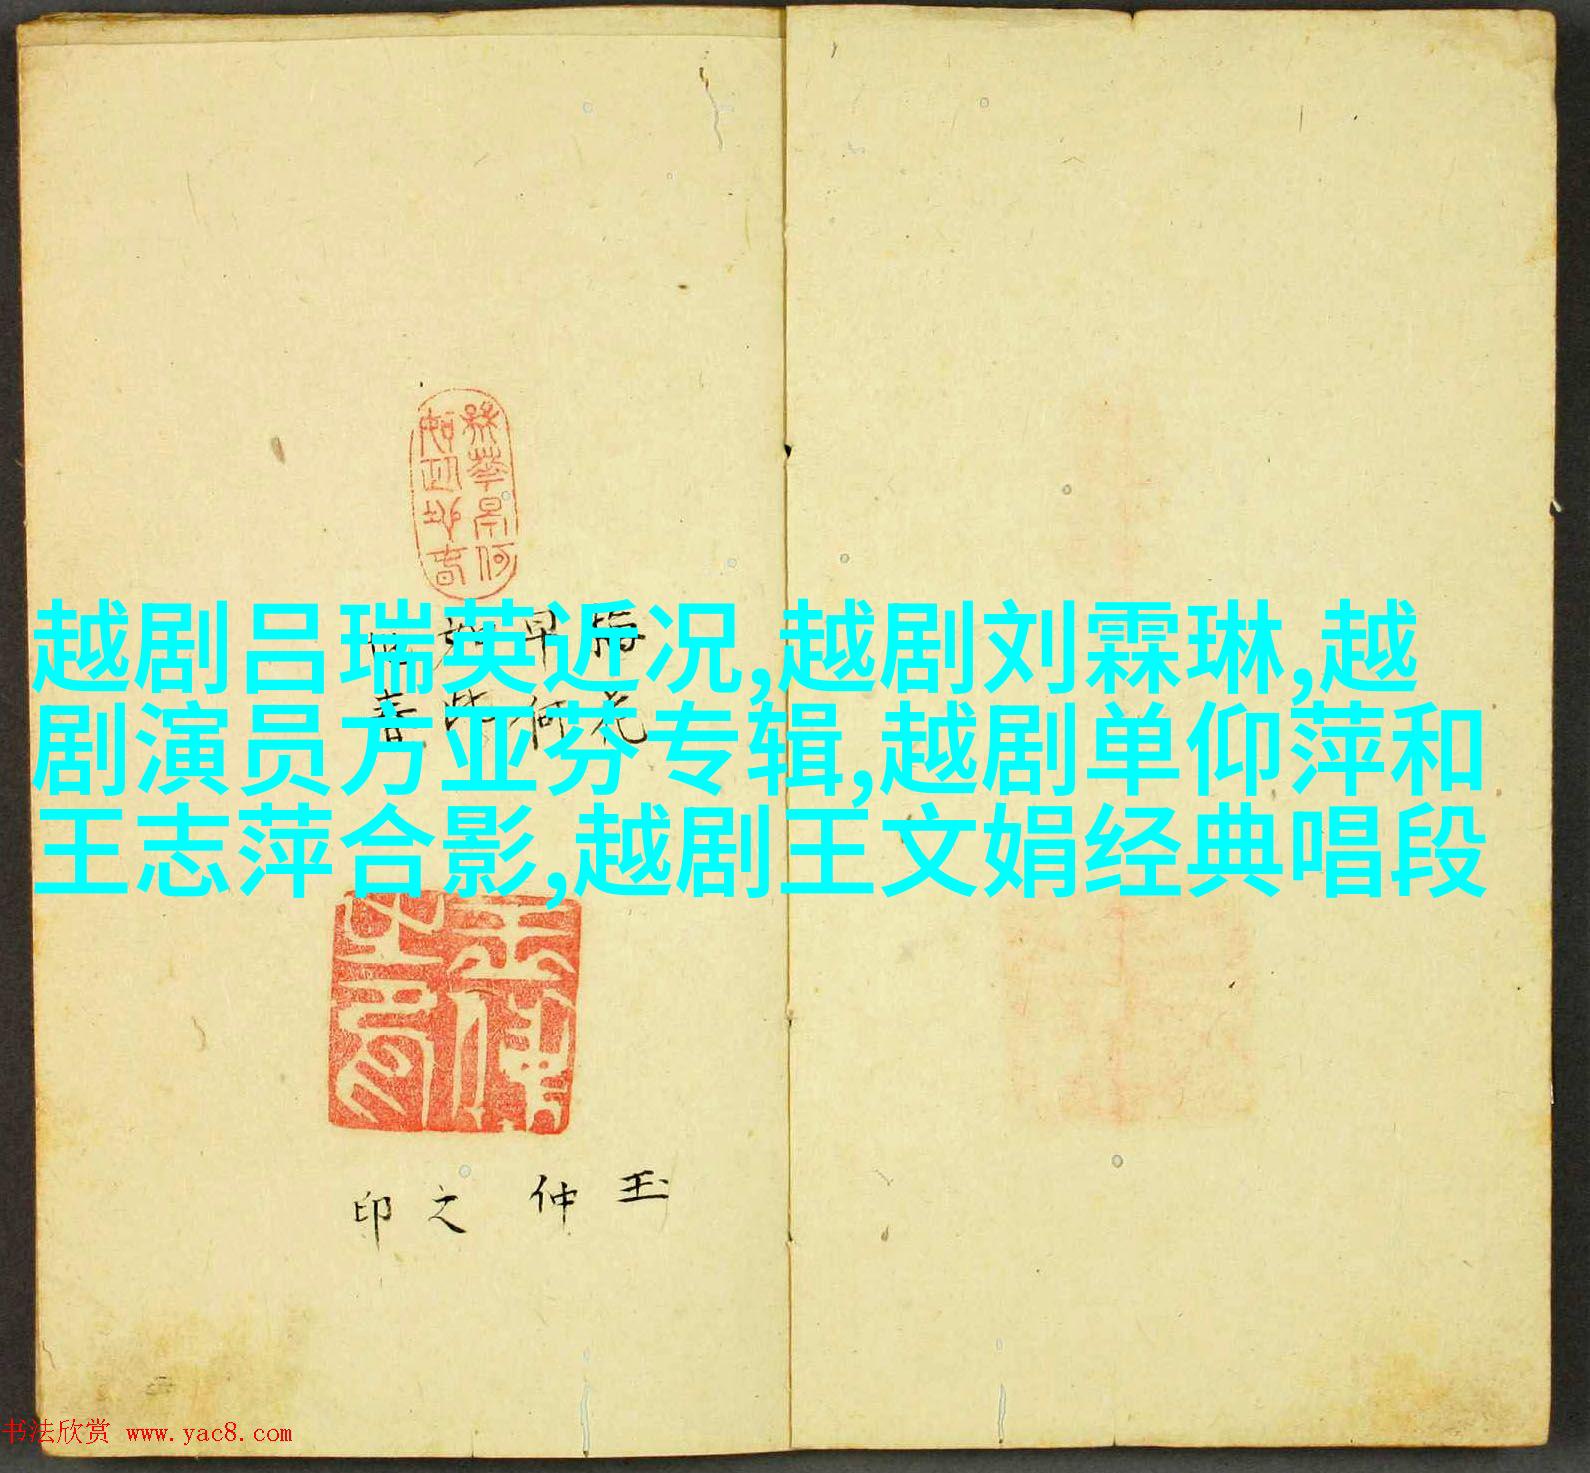 越剧吕瑞英近况,越剧刘霖琳,越
剧演员方亚芬专辑,越剧单仰萍和
王志萍合影,越剧王文娟经典唱段
梅花
早何
如此
春
玉仲之印
书法欣赏 www.yac8.com